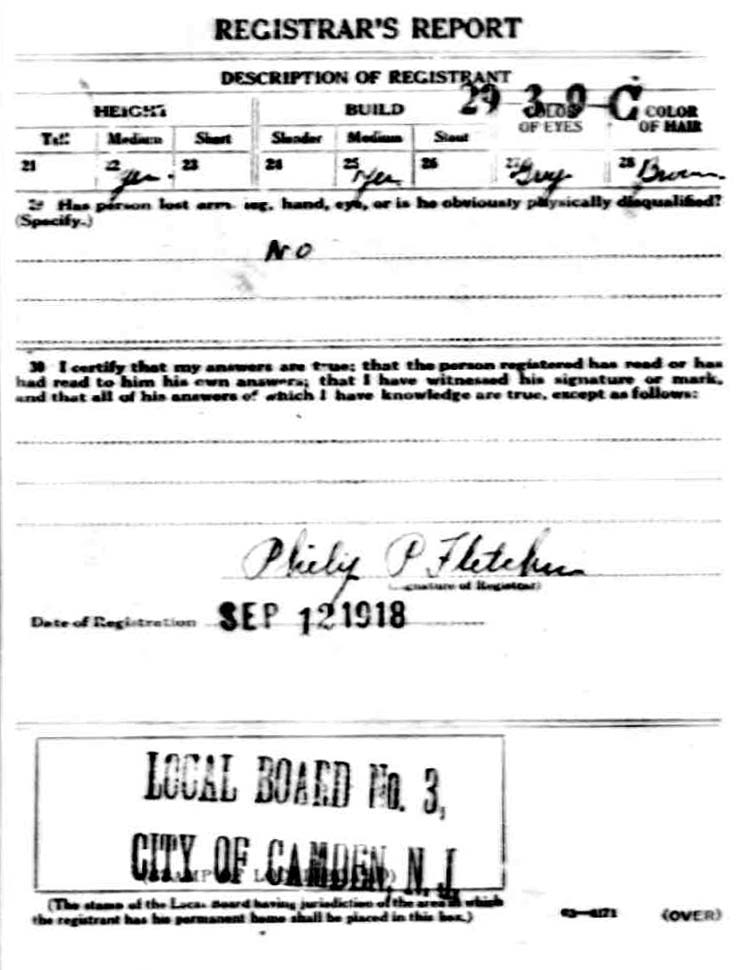 REGISTRAR'S REPORT
DESCRIPTION OF REGISTRANT
29 3 9 C
HEIGHT BUILD COLOR OF EYES COLOR OF HAIR
Tall Medium Short Slender Medium Stout
21 22 Yes. 23 24 25 Yes 26 27 Grey 28 Brown.
29 Has person lost arm, leg, hand, eye, or is he obviously physically disqualified?
(Specify.)
No
30 I certify that my answers are true; that the person registered has read or has
had read to him his own answers; that I have witnessed his signature or mark,
and that all of his answers of which I have knowledge are true, except as follows:
Philip P Fletcher
(Signature of Registrar)
Date of Registration SEP 12 1918
LOCAL BOARD No. 3,
CITY OF CAMDEN, N. J.
(STAMP OF LOCAL BOARD)
(The stamp of the Local Board having jurisdiction of the area in which
the registrant has his permanent home shall be placed in this box.)
(OVER)